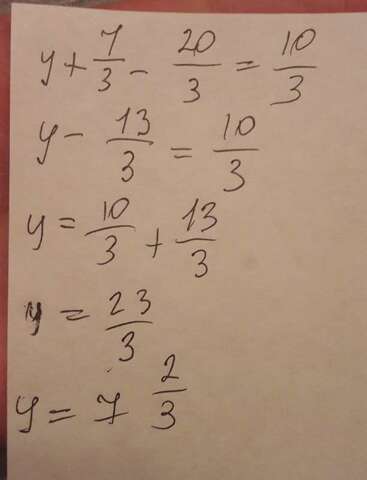 y + 7/3 - 20/3 = 10/3
y - 13/3 = 10/3
y = 10/3 + 13/3
y = 23/3
y = 7 2/3